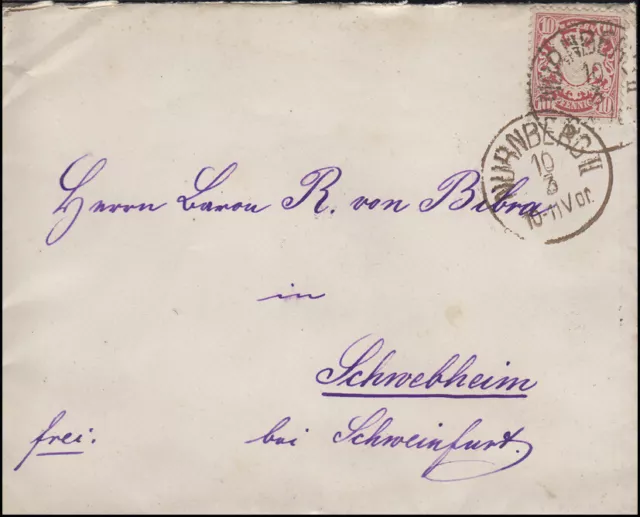 10 10
PFENNIG
NÜRNBERG II
10
3
NÜRNBERG II
10
3
10-11 Vor.
Herrn Baron R. von Bibra
in
Schwebheim
frei. bei Schweinfurt.